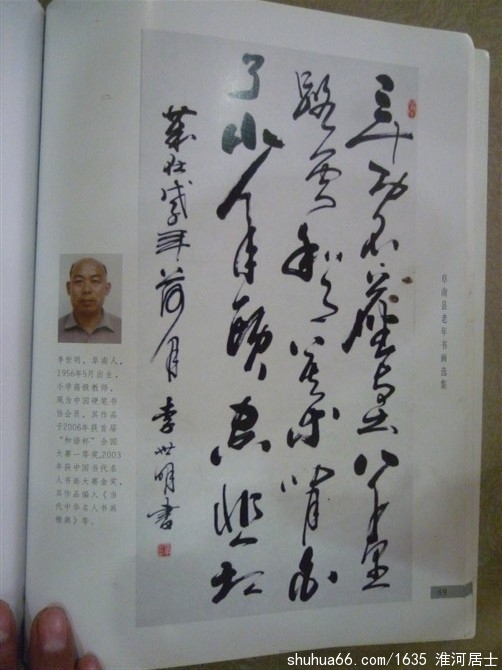 三十功名塵與土八千里
路雲和月莫等閑白
了少年頭空悲切
年荷月 李世明書
阜南县老年书画选集
李世明，阜南人，
1956年5月出生，
小学高级教师，
现为中国硬笔书
协会员，其作品
于2006年获首届
“和谐杯”全国
大赛一等奖,2003
年获中国当代名
人书画大赛金奖，
其作品编入《当
代中华名人书画
》等。
49
shuhua66.com/1635 淮河居士